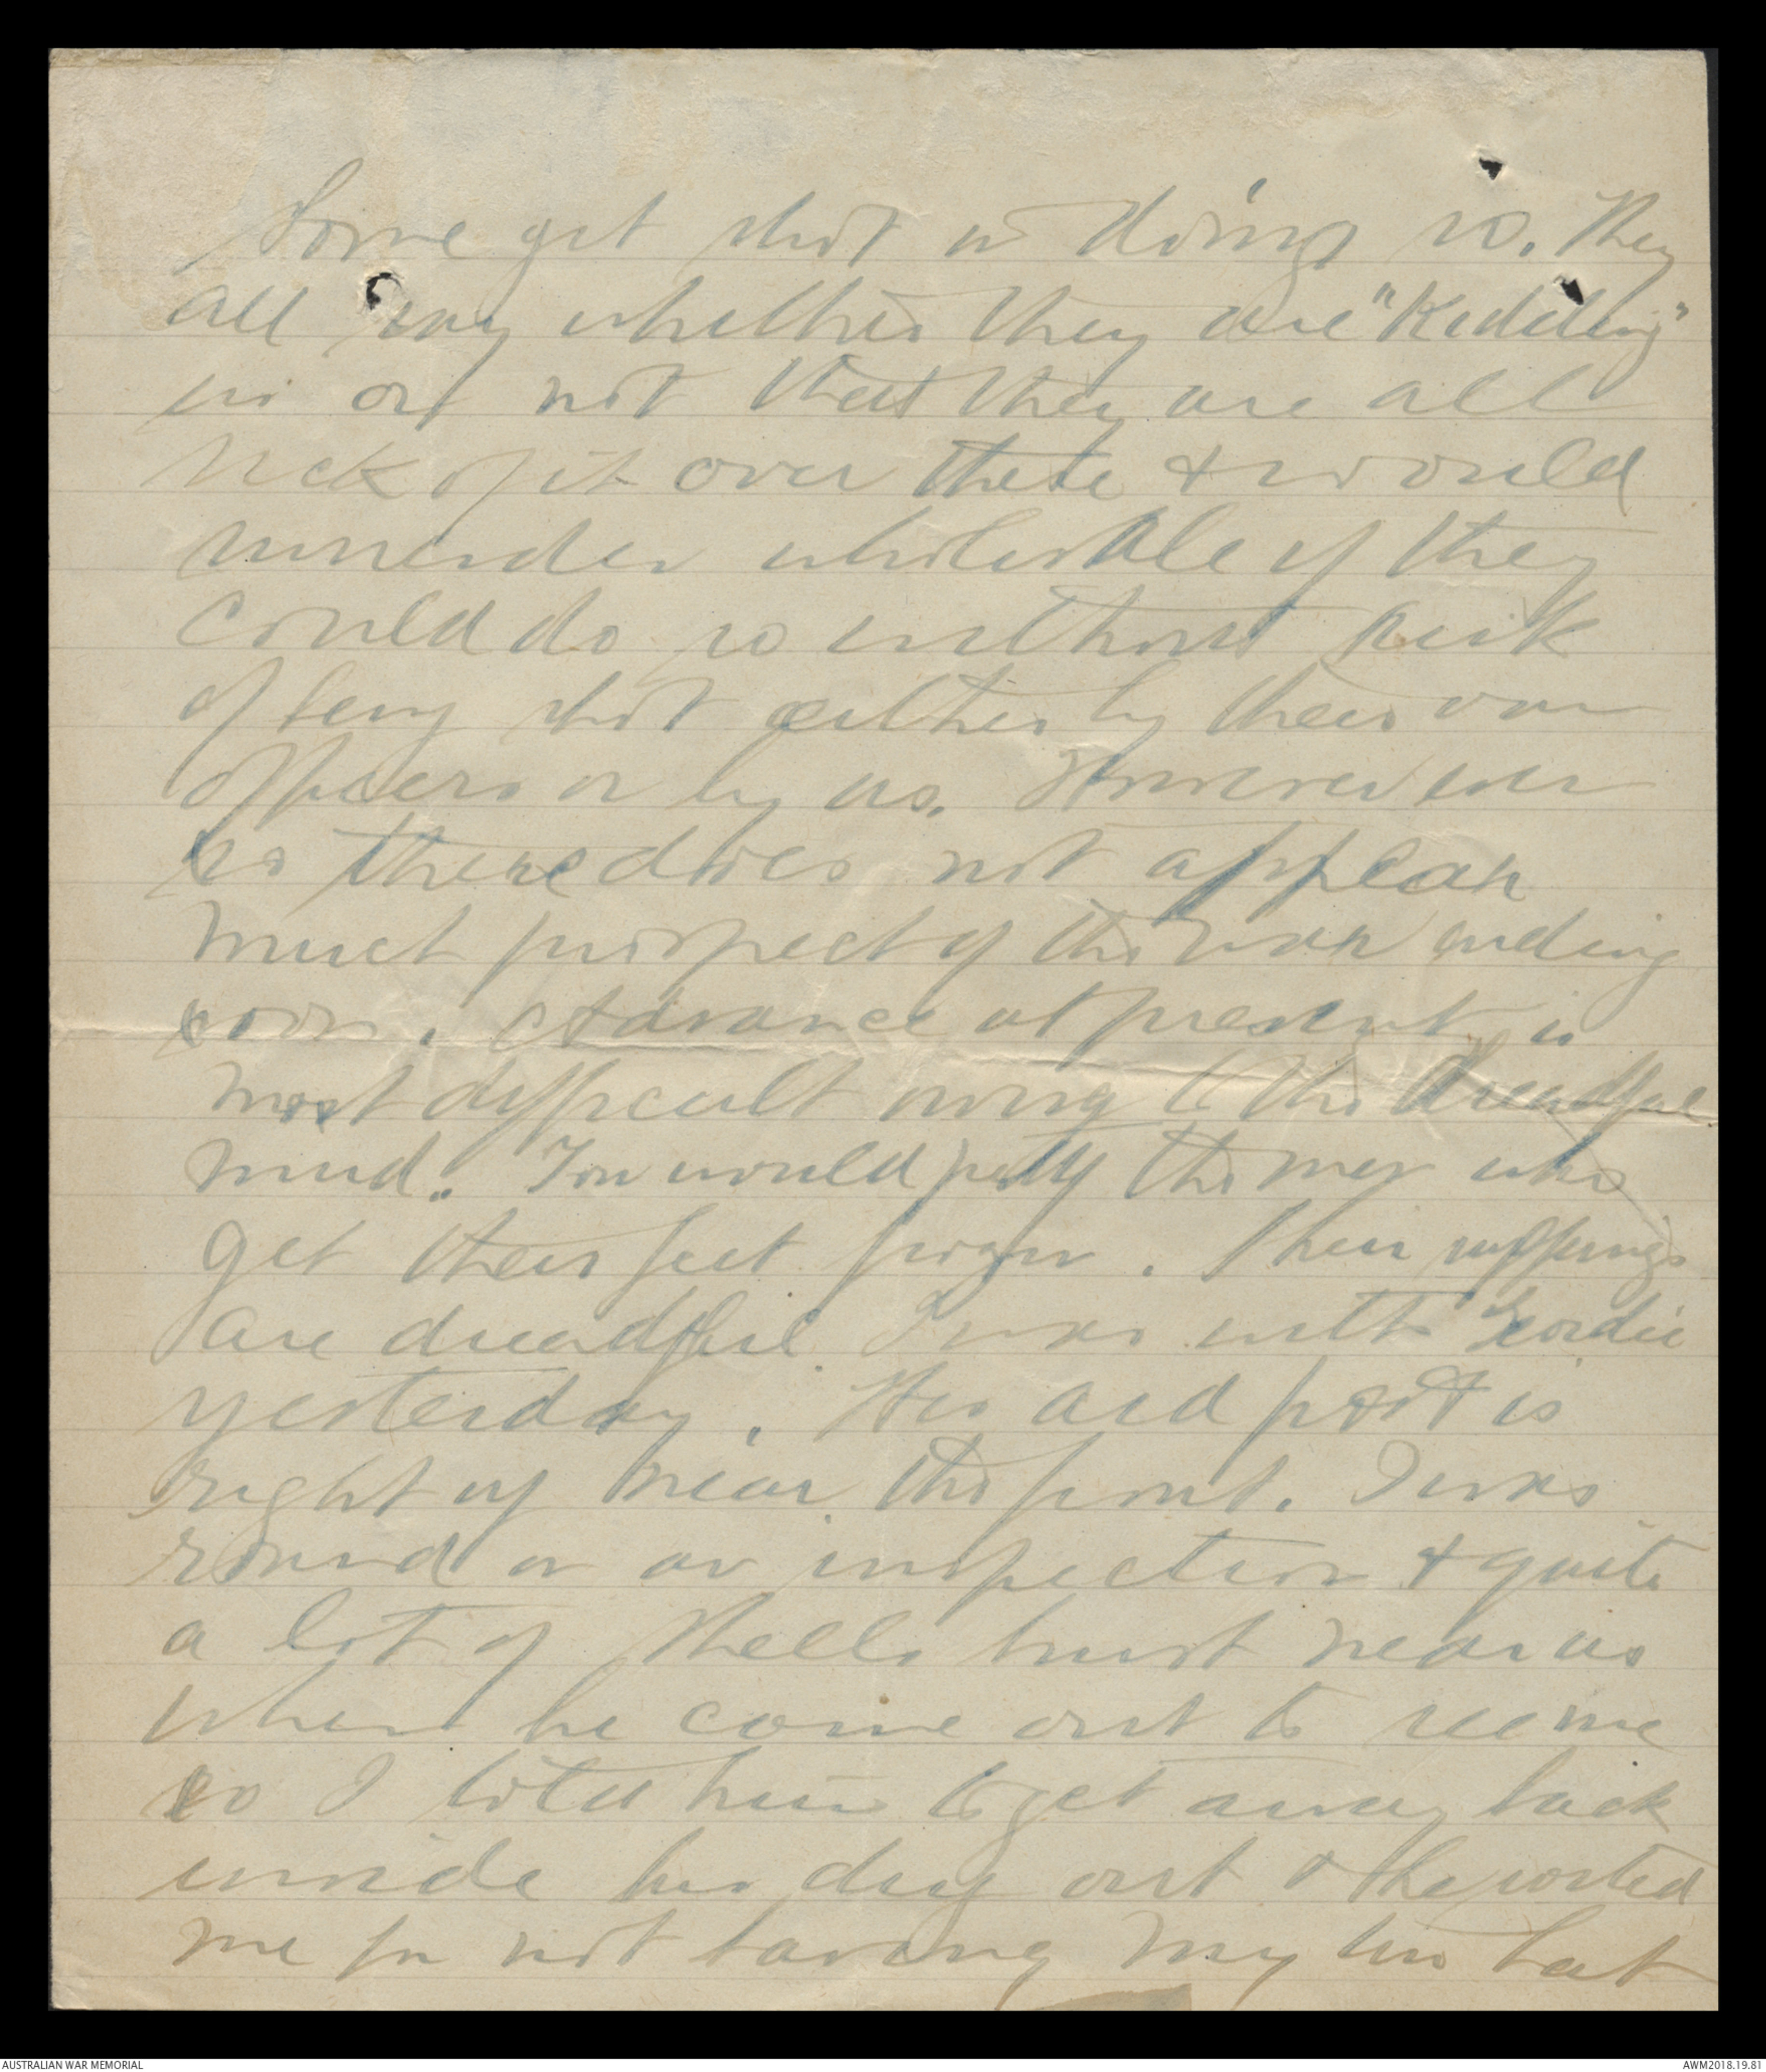 Some get shot in doing so. They
all say whether they are "Kidding"
us or not that they are all
sick of it over there & would
surrender wholesale if they
could do so without risk
of being shot either by their own
officers or by us. However even
so there does not appear
much prospect of the war ending
soon. Advance at present is
most difficult owing to the dreadful
mud. You would pity the men who
get their feet frozen. Their sufferings
are dreadful. I was with Geordie
yesterday. His aid post is
right up near the front. I was
round on an inspection & quite
a lot of shells burst near us
when he come out to see me
so I told him to get away back
inside his dug out & he roasted
me for not having my tin hat
AUSTRALIAN WAR MEMORIAL
AWM2018.19.81